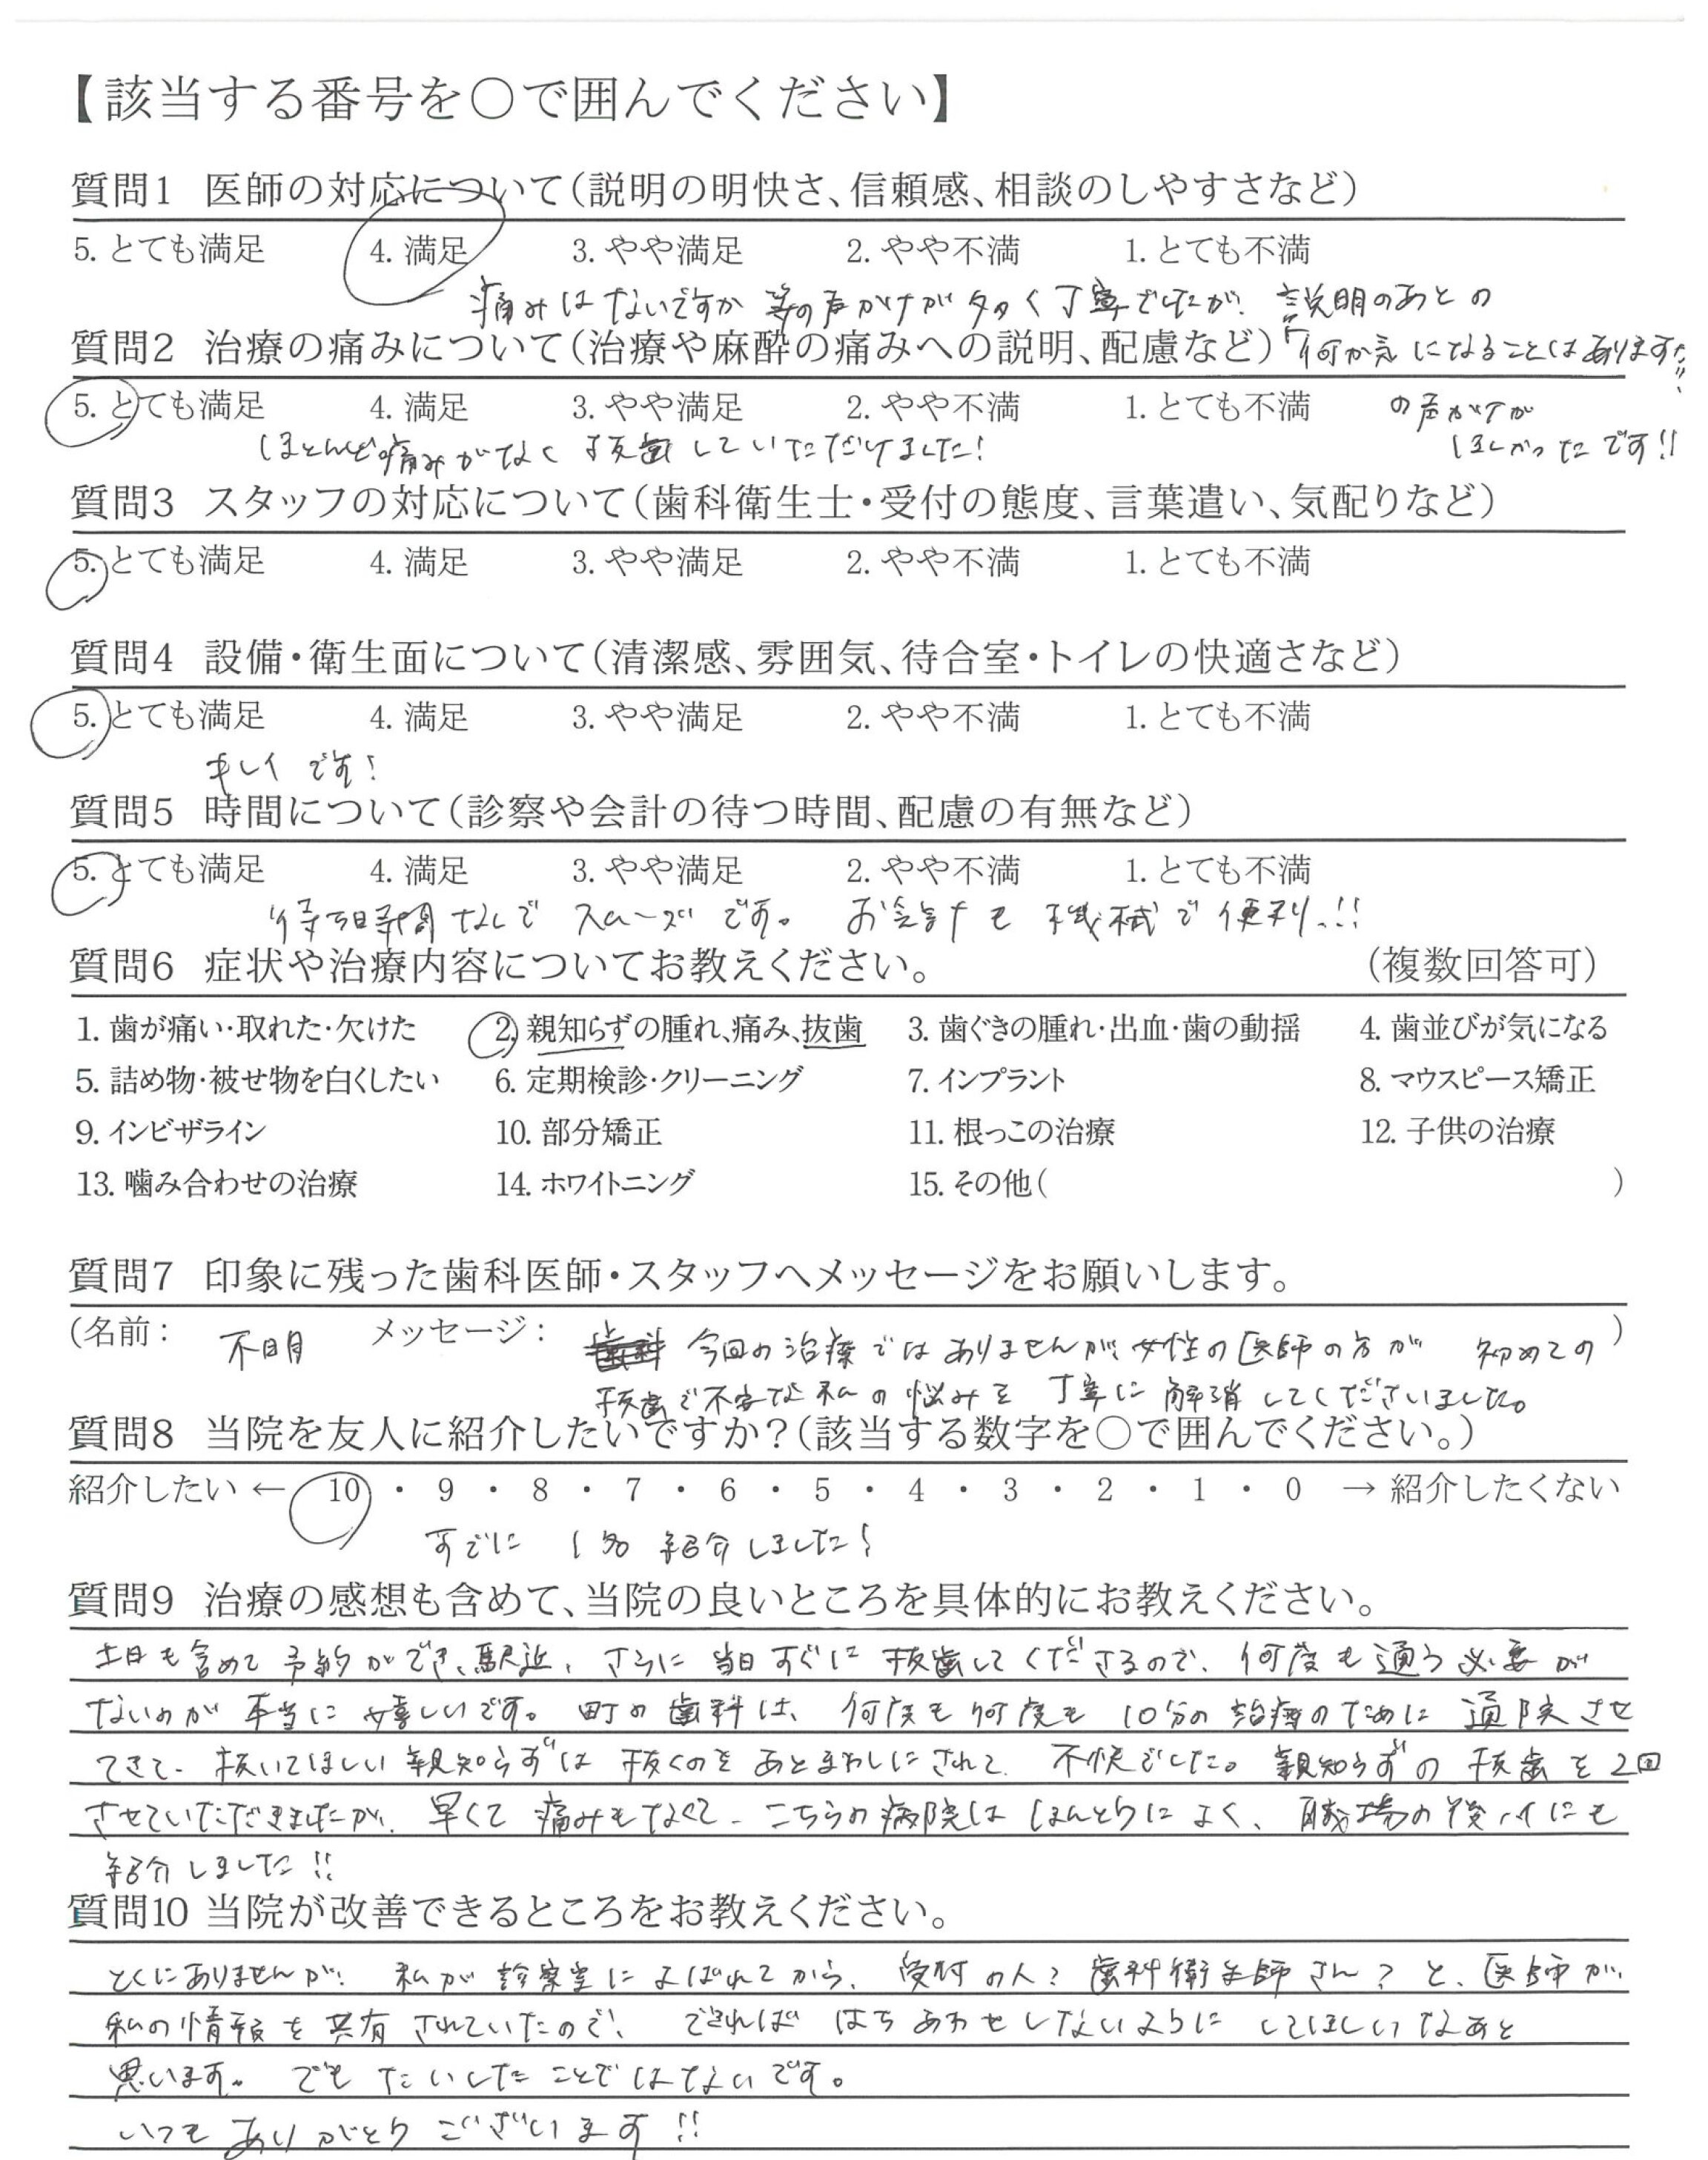 【該当する番号を○で囲んでください】
質問1 医師の対応について(説明の明快さ、信頼感、相談のしやすさなど)
5. とても満足 4. 満足 3. やや満足 2. やや不満 1. とても不満
痛みはないですか 等の声かけが多く丁寧でしたが、説明のあとの
「何か気になることはありますか」
の声がけが
ほしかったです!!
質問2 治療の痛みについて(治療や麻酔の痛みへの説明、配慮など)
5. とても満足 4. 満足 3. やや満足 2. やや不満 1. とても不満
ほとんど痛みがなく 抜歯していただけました!
質問3 スタッフの対応について(歯科衛生士・受付の態度、言葉遣い、気配りなど)
5. とても満足 4. 満足 3. やや満足 2. やや不満 1. とても不満
質問4 設備・衛生面について(清潔感、雰囲気、待合室・トイレの快適さなど)
5. とても満足 4. 満足 3. やや満足 2. やや不満 1. とても不満
キレイ です!
質問5 時間について(診察や会計の待つ時間、配慮の有無など)
5. とても満足 4. 満足 3. やや満足 2. やや不満 1. とても不満
待ち時間なしで スムーズ です。 お会計も 機械で便利!!
質問6 症状や治療内容についてお教えください。 (複数回答可)
1. 歯が痛い・取れた・欠けた 2. 親知らずの腫れ、痛み、抜歯 3. 歯ぐきの腫れ・出血・歯の動揺 4. 歯並びが気になる
5. 詰め物・被せ物を白くしたい 6. 定期検診・クリーニング 7. インプラント 8. マウスピース矯正
9. インビザライン 10. 部分矯正 11. 根っこの治療 12. 子供の治療
13. 噛み合わせの治療 14. ホワイトニング 15. その他( )
質問7 印象に残った歯科医師・スタッフへメッセージをお願いします。
(名前: 不明 メッセージ: 今回の治療ではありませんが、女性の医師の方が 初めての )
抜歯で不安な私の悩みを 丁寧に解消してくださいました。
質問8 当院を友人に紹介したいですか?(該当する数字を○で囲んでください。)
紹介したい ← 10 ・ 9 ・ 8 ・ 7 ・ 6 ・ 5 ・ 4 ・ 3 ・ 2 ・ 1 ・ 0 → 紹介したくない
すでに 1名 紹介しました!
質問9 治療の感想も含めて、当院の良いところを具体的にお教えください。
土日も含めて予約ができ、駅近、さらに当日すぐに抜歯してくださるので、何度も通う必要が
ないのが本当に嬉しいです。町の歯科は、何度も何度も10分の治療のために通院させ
てきて、抜いてほしい親知らずは抜くのをあとまわしにされて、不快でした。親知らずの抜歯を2回
させていただきましたが、早くて痛みもなくて、こちらの病院はほんとうによく、職場の後輩にも
紹介しました!!
質問10 当院が改善できるところをお教えください。
とくにありませんが、私が診察室によばれてから、受付の人?歯科衛生師さん?と、医師が、
私の情報を共有されていたので、できれば はちあわせしないようにしてほしいなあと
思います。でもたいしたことではないです。
いつもありがとうございます!!